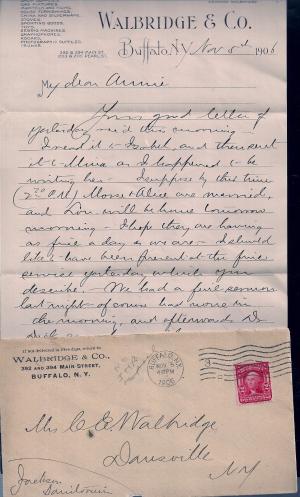 WALBRIDGE & CO.
HOUSE FURNISHINGS,
CHINA AND SILVERWARE,
STOVES,
SPORTING GOODS,
TOYS,
SEWING MACHINES,
GRAPHOPHONES,
KODAKS,
PHOTOGRAPHIC SUPPLIES,
TRUNKS.
392 & 394 MAIN ST.
Buffalo, N.Y. Nov 5th 1906
My dear Annie
Your good letter of
yesterday rec'd this morning
I read it to Isobel, and then sent
it to as I happened to be
writing her - I suppose by this time
(2 20 P.M.) & Alice are married,
and Lou will be home tomorrow
morning - I hope they are having
as fine a day as we are - I should
like to have been present at the fine
service yesterday which you
describe - We had a full sermon
last night - of course had none in
the morning, and afterwards
If not delivered in five days, return to
WALBRIDGE & CO.,
392 AND 394 MAIN STREET,
BUFFALO, N. Y.
BUFFALO, N.Y.
NOV 5
1906
Mrs C. E. Walbridge
Dansville
N.Y.
Jackson
Sanitorium